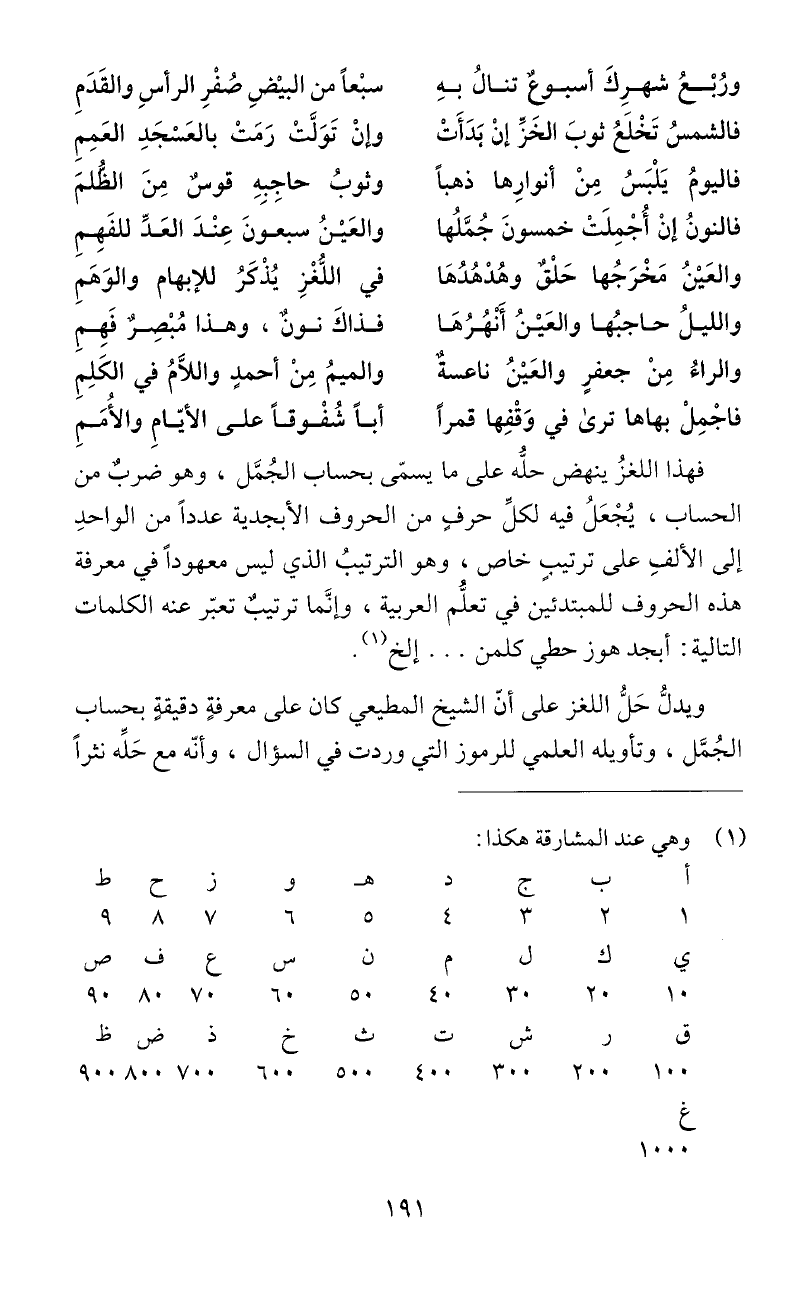 ورُبْـعُ شهـرِكَ أسبـوعٌ تنـالُ بـهِ سبْعاً من البيْضِ صُفْرِ الرأسِ والقَدَمِ
فالشمسُ تَخْلَعُ ثوبَ الخَزِّ إنْ بَدَأَتْ وإنْ تَوَلَّتْ رَمَتْ بالعَسْجَدِ العَمِمِ
فاليومُ يَلْبَسُ مِنْ أنوارِها ذهباً وثوبُ حاجِبِهِ قوسٌ مِنَ الظُّلَمَ
فالنونُ إنْ أُجْمِلَتْ خمسونَ جُمَّلُها والعَيْنُ سبعونَ عِنْدَ العَدِّ للفَهِمِ
والعَيْنُ مَخْرَجُها حَلْقٌ وهُدْهُدُهَا في اللُّغْزِ يُذْكَرُ للإبهام والوَهَمِ
والليـلُ حـاجبُهـا والعَيْـنُ أَنْهُـرُهَـا فـذاكَ نـونٌ ، وهـذا مُبْصِـرٌ فَهِـمِ
والراءُ مِنْ جعفرٍ والعَيْنُ ناعسةٌ والميمُ مِنْ أحمدٍ واللاَّمُ في الكَلِمِ
فاجْمِلْ بهاها ترىٰ في وَقْفِها قمراً أبـاً شُفْـوقـاً علـى الأيّـامِ والأُمَـمِ
فهذا اللغزُ ينهض حلُّه على ما يسمّى بحساب الجُمَّل ، وهو ضربٌ من
الحساب ، يُجْعَلُ فيه لكلِّ حرفٍ من الحروف الأبجدية عدداً من الواحدِ
إلى الألفِ على ترتيبٍ خاص ، وهو الترتيبُ الذي ليس معهوداً في معرفة
هذه الحروف للمبتدئين في تعلُّم العربية ، وإنَّما ترتيبٌ تعبّر عنه الكلمات
التالية: أبجد هوز حطي كلمن . . . إلخ(١).
ويدلُّ حَلُّ اللغز على أنّ الشيخ المطيعي كان على معرفةٍ دقيقةٍ بحساب
الجُمَّل ، وتأويله العلمي للرموز التي وردت في السؤال ، وأنّه مع حَلِّه نثراً
(١) وهي عند المشارقة هكذا:
أ ب ج د هـ و ز ح ط
١ ٢ ٣ ٤ ٥ ٦ ٧ ٨ ٩
ي ك ل م ن س ع ف ص
١٠ ٢٠ ٣٠ ٤٠ ٥٠ ٦٠ ٧٠ ٨٠ ٩٠
ق ر ش ت ث خ ذ ض ظ
١٠٠ ٢٠٠ ٣٠٠ ٤٠٠ ٥٠٠ ٦٠٠ ٧٠٠ ٨٠٠ ٩٠٠
غ
١٠٠٠
١٩١